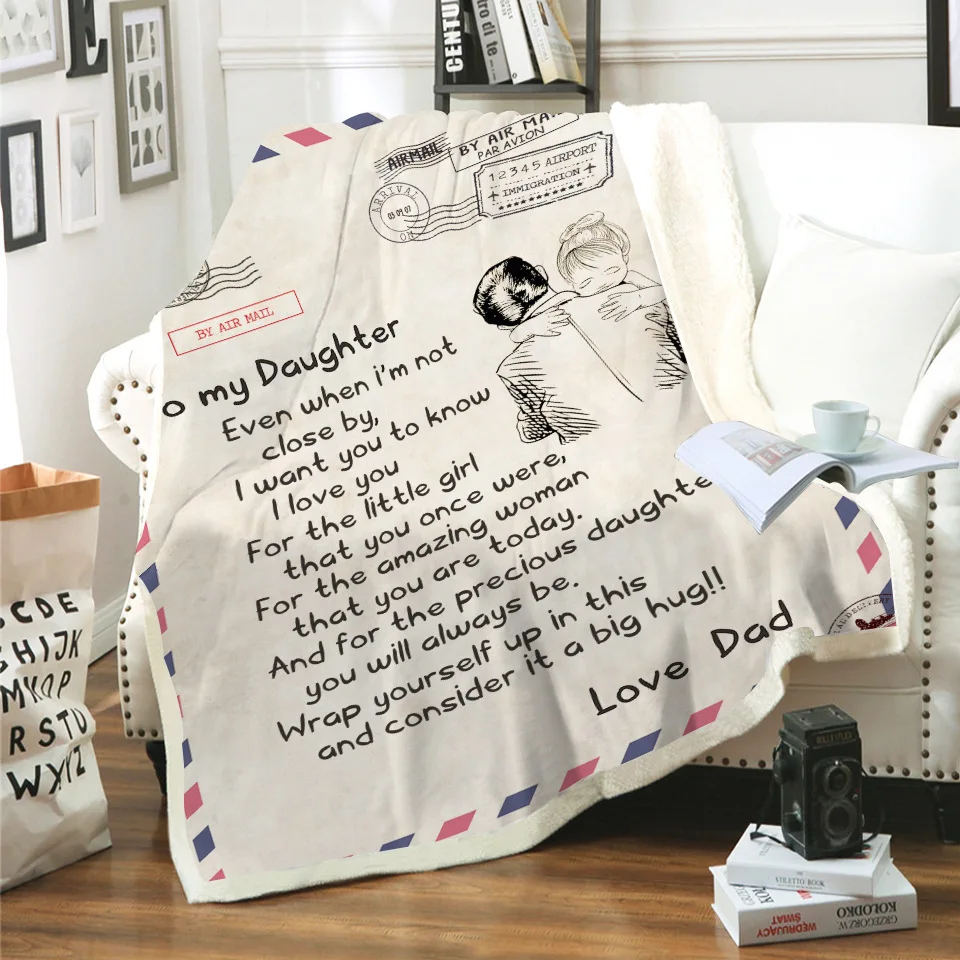 E
CENTU
tro di te
AIRMAIL
BY AIR MA
PAR AVION
12345 AIRPORT
IMMIGRATION
ARRIVAL
BY AIR MAIL
o my Daughter
Even when i'm not
close by,
I want you to know
I love you
For the little girl
that you once were,
For the amazing woman
that you are today.
And for the precious daughte
you will always be.
Wrap yourself up in this
and consider it a big hug!!
Love Dad
CDE
GHIJK
MNOP
RSTU
WXYZ
STILETTO BOOK
GRZEGORZ W.
KOŁODKO
WĘDRUJĄCY
ŚWIAT